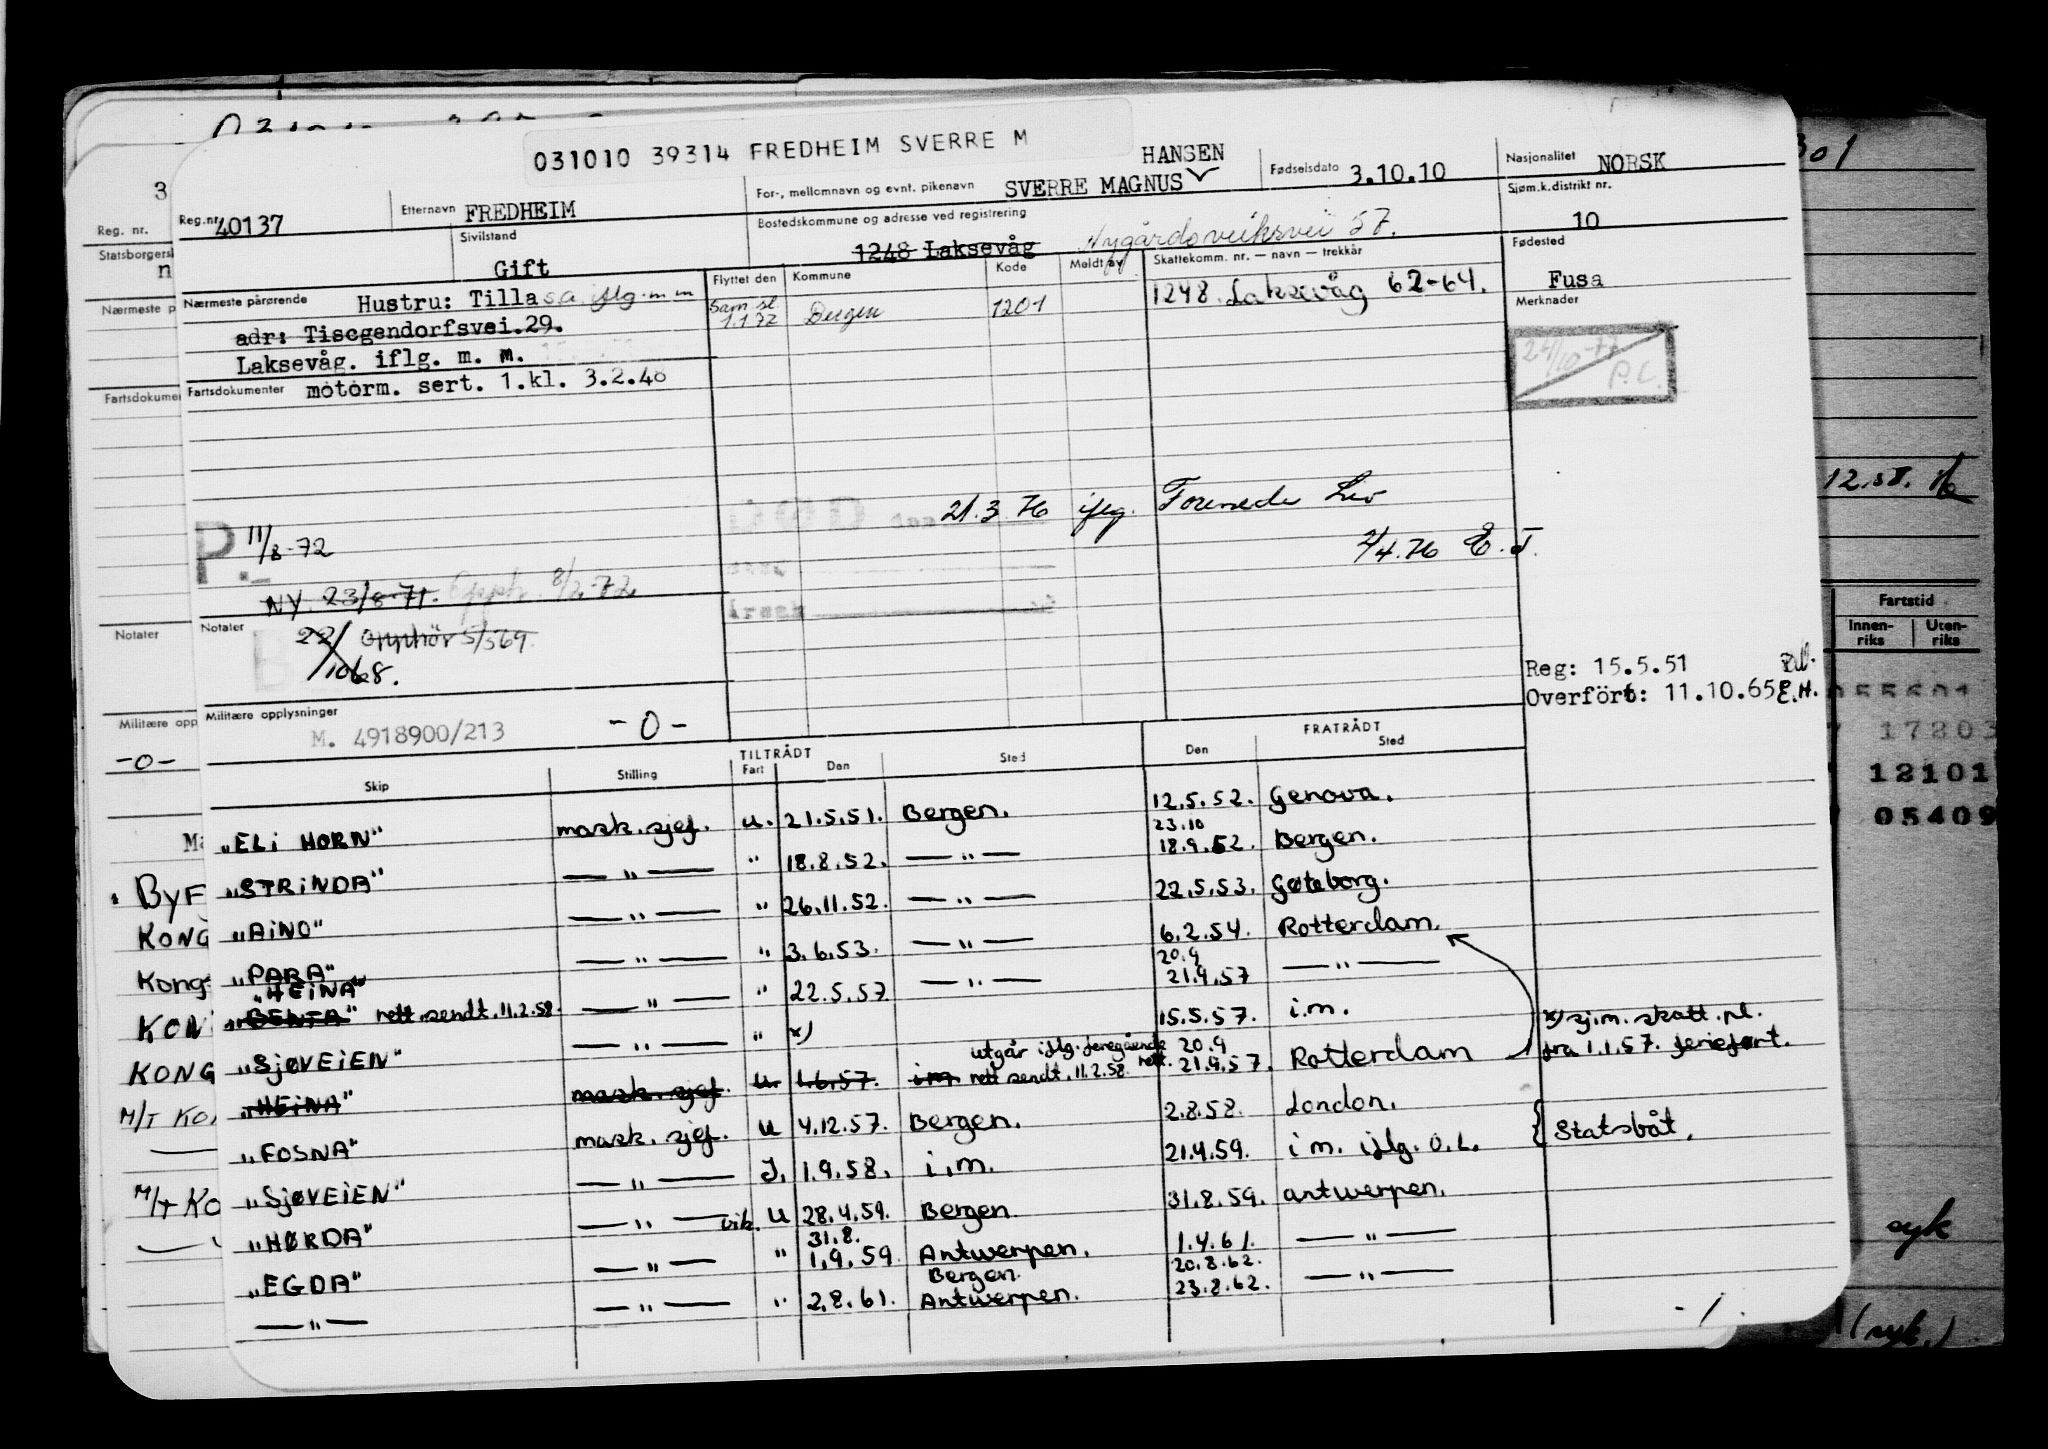 031010 39314 FREDHEIM SVERRE M
Reg.nr. 40137
Etternavn FREDHEIM
For-, mellomnavn og evnt. pikenavn SVERRE MAGNUS HANSEN
Fødselsdato 3.10.10
Nasjonalitet NORSK
Sivilstand
Gift
Bostedskommune og adresse ved registrering
1248 Laksevåg Nygårdsviksvei 57.
Sjøm.k.distrikt nr.
10
Nærmeste pårørende Hustru: Tilla s.a. iflg. m m
adr: Tiscgendorfsvei.29.
Laksevåg. iflg. m. m.
Flyttet den Kommune Kode Meldt av
Sam.sl. 1.1.72 Bergen 1201
Skattekomm. nr. — navn — trekkår
1248. Laksevåg 62-64.
Fødested
Fusa
Merknader
24/10-77 P.C.
Fartsdokumenter motorm. sert. 1.kl. 3.2.48
DØD 21.3.76 iflg. Forenede Liv
2/4.76 E.T.
P. 11/8-72
NY. 23/8-71. Opph. 8/2-72
Notater
22/1068. Opphör 5/569.
Årsak
Reg: 15.5.51
Overført: 11.10.65 E.H.
Militære opplysninger
M. 4918900/213 -0-
TILTRÅDT FRATRÅDT
Skip Stilling Fart Den Sted Den Sted
"ELI HORN" mask. sjef. u. 21.5.51. Bergen. 12.5.52. Genova.
"STRINDA" — " — " 18.8.52. — " — 23.10 18.9.52. Bergen.
"AINO" — " — " 26.11.52. — " — 22.5.53. Gøteborg.
"PARA" — " — " 3.6.53. — " — 6.2.54. Rotterdam.
"HEINA"
"BENTA" rett. sendt. 11.2.58. — " — " 22.5.57. — " — 20.9 21.9.57 — " —
"SJØVEIEN" — " — " x) 15.5.57. i.m. x) sj.m. skatt. pl. fra 1.1.57. feriefart.
"HEINA" mask. sjef. u. 1.6.57. i.m. utgår iflg. foregående rett. rett sendt. 11.2.58. 20.9 21.9.57. Rotterdam
"FOSNA" mask. sjef. u 4.12.57. Bergen. 2.8.58. London.
"SJØVEIEN" — " — J. 1.9.58. i.m. 21.4.59. i m. iflg. O.L. } Statsbåt.
"HØRDA" — " — vik. U 28.4.59. Bergen. 31.8.59. Antwerpen.
"EGDA" — " — " 31.8. 1.9.59. Antwerpen. 1.4.61. — " —
— " — — " — " 2.8.61. Bergen. Antwerpen. 20.8.62. 23.8.62. — " —
-1.
Reg. nr.
Nærmeste p
Notater
Militære opp
-0-
BYF
KONG
Kong
KONG
M/T KO
M/T KO
301
Fartstid
Innen-riks Uten-riks
17203
12101
05409
syk
(syk.)